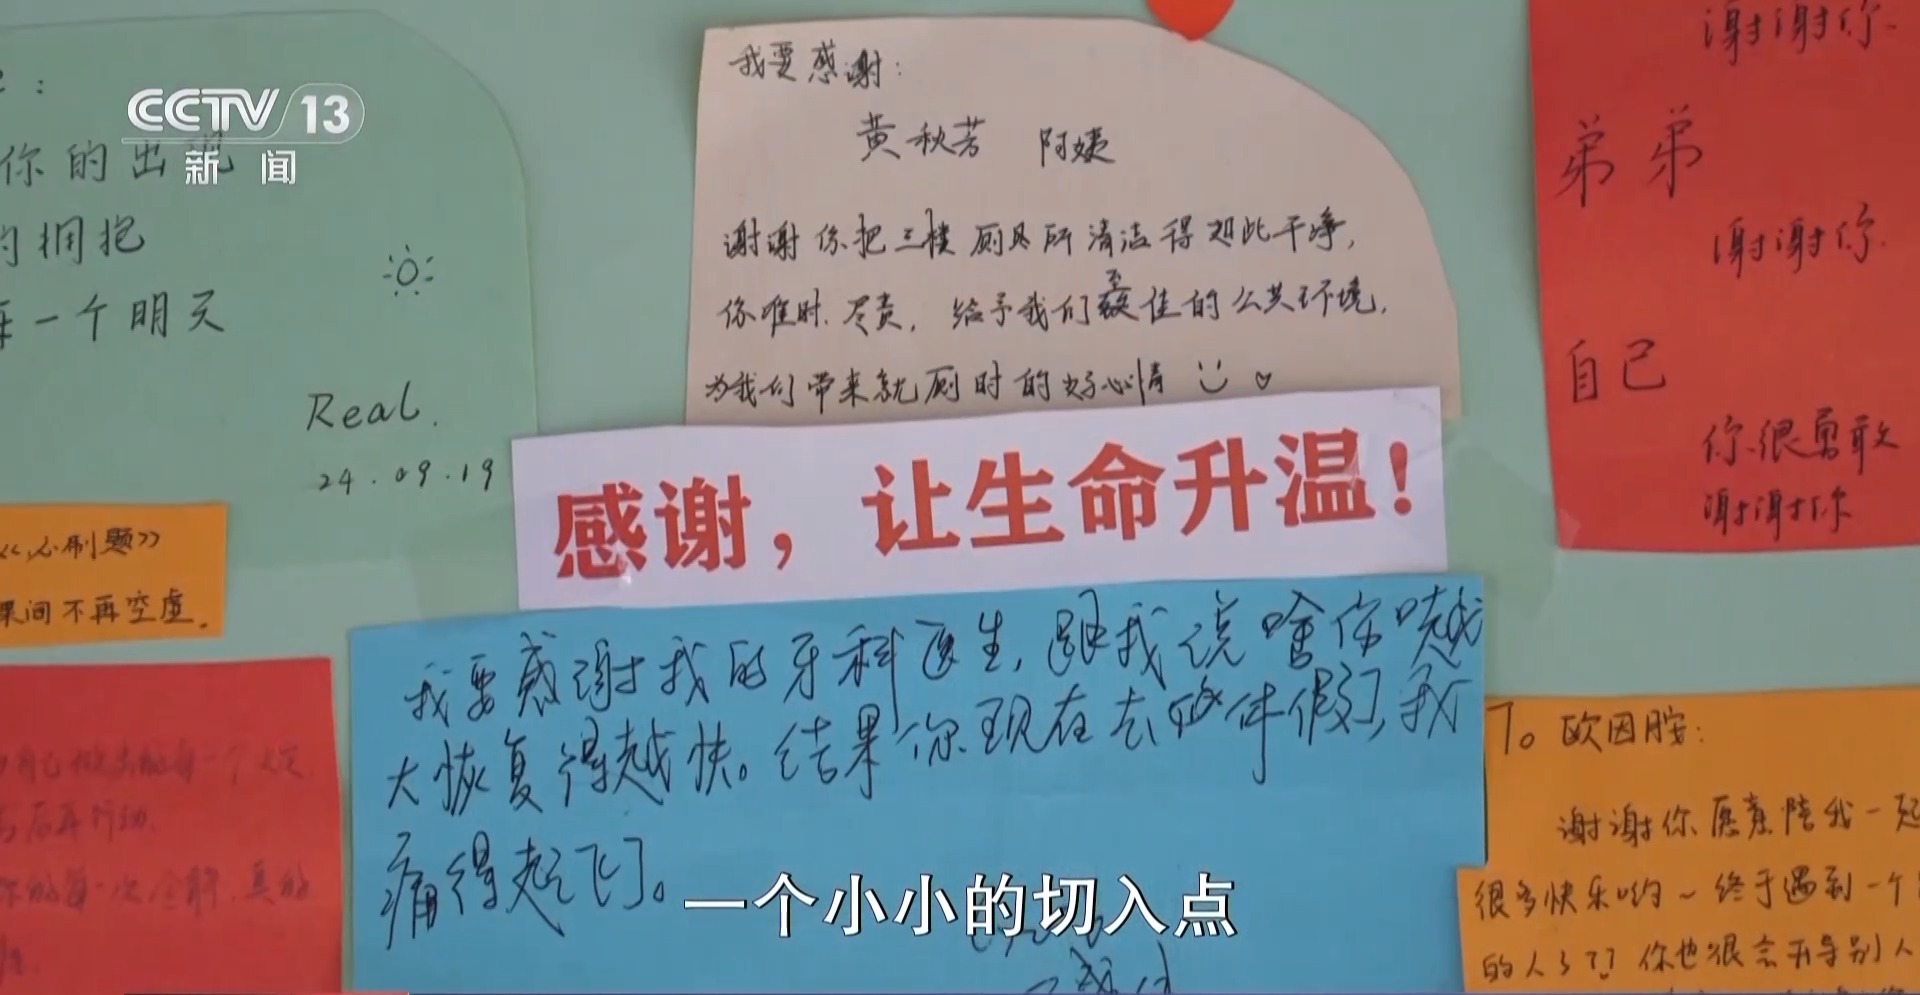 CCTV 13
新闻
你的出现
的拥抱
每一个明天
Real.
24.09.19
我要感谢:
黄秋芳 阿姨
谢谢你把三楼厕所清洁得如此干净,
你准时.尽责,给予我们至佳的公共环境.
为我们带来就厕时的好心情
谢谢你.
弟弟
谢谢你.
自己
你很勇敢
谢谢你
感谢,让生命升温!
《必刷题》
课间不再空虚.
我要感谢我的牙科医生,跟我说啥你
大恢复得越快。结果你现在去休假了,我
痛得起飞了。
To 欧因胺:
谢谢你愿意陪我一起
很多快乐哟~终于遇到一个
的人了?? 你也很会开导别人
一个小小的切入点